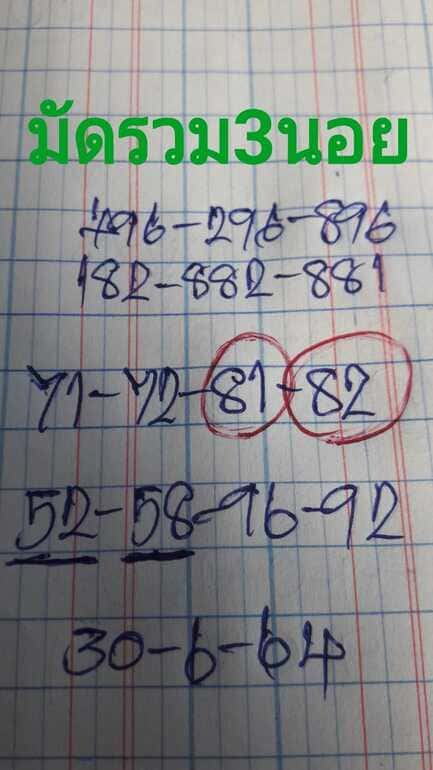 มัดรวม3นอย
796-296-896
182-882-881
71-72-81-82
52-58-96-92
30-6-64